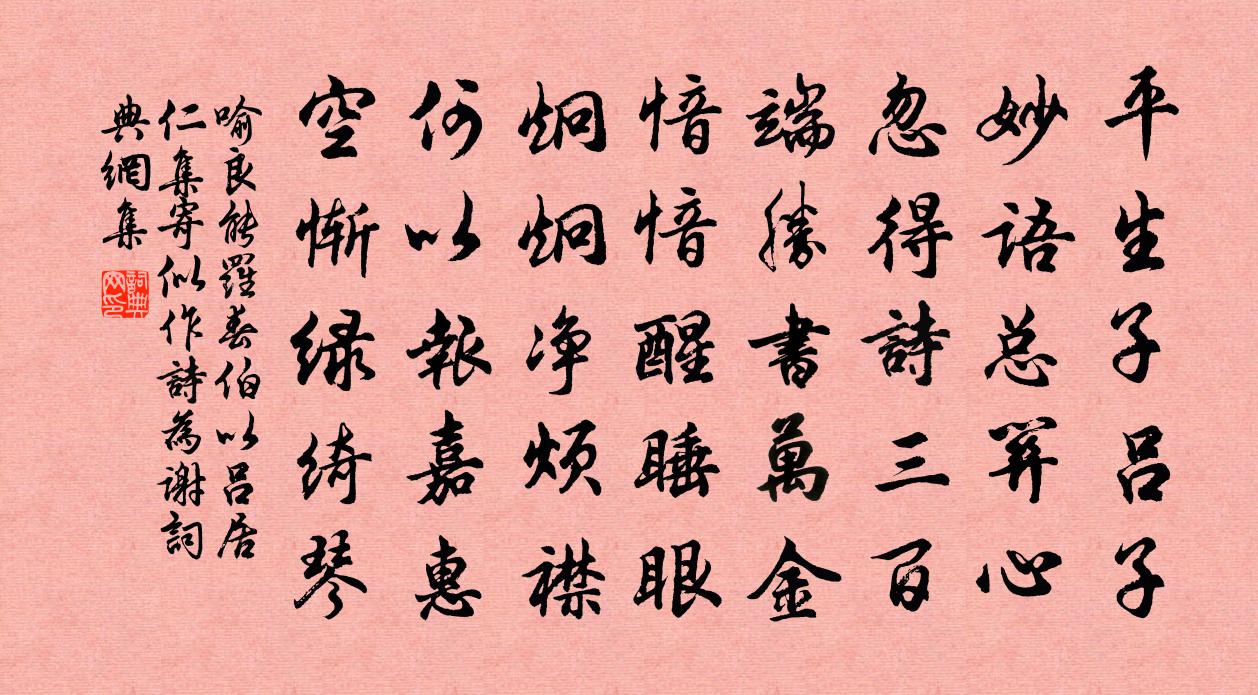 平生子呂子
妙語总关心
忽得詩三百
端勝書萬金
愔愔醒睡眼
炯炯净烦襟
何以報嘉惠
空惭绿绮琴
喻良能羅春伯以呂居
仁集寄似作詩為謝詞
典網集
詞典网印